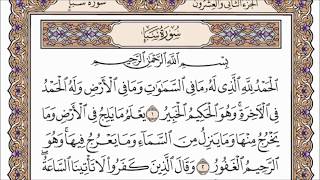 الجزء الثاني والعشرون
سورة سبأ
سُورَةُ سَبَإٍ
بِسْمِ اللَّهِ الرَّحْمَٰنِ الرَّحِيمِ
الْحَمْدُ لِلَّهِ الَّذِي لَهُ مَا فِي السَّمَاوَاتِ وَمَا فِي الْأَرْضِ وَلَهُ الْحَمْدُ
فِي الْآخِرَةِ وَهُوَ الْحَكِيمُ الْخَبِيرُ ١ يَعْلَمُ مَا يَلِجُ فِي الْأَرْضِ وَمَا
يَخْرُجُ مِنْهَا وَمَا يَنْزِلُ مِنَ السَّمَاءِ وَمَا يَعْرُجُ فِيهَا وَهُوَ
الرَّحِيمُ الْغَفُورُ ٢ وَقَالَ الَّذِينَ كَفَرُوا لَا تَأْتِينَا السَّاعَةُ